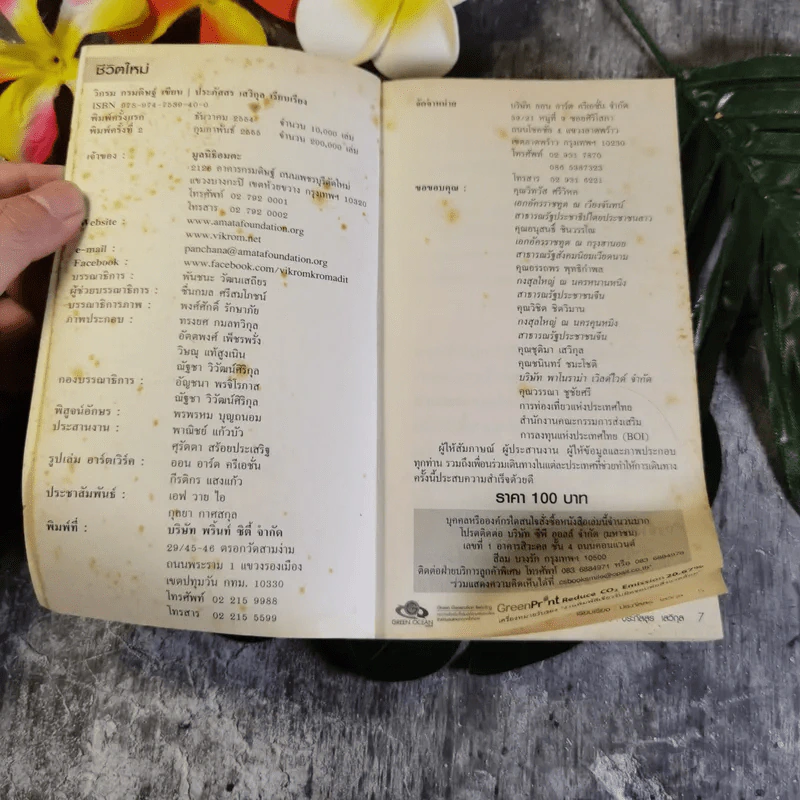 ชีวิตใหม่
วิกรม กรมดิษฐ์ เขียน | ประภัสสร เสวิกุล เรียบเรียง
ISBN 978-974-7530-40-0
พิมพ์ครั้งแรก ธันวาคม 2554 จำนวน 10,000 เล่ม
พิมพ์ครั้งที่ 2 กุมภาพันธ์ 2555 จำนวน 200,000 เล่ม
เจ้าของ : มูลนิธิอมตะ
2126 อาคารกรมดิษฐ์ ถนนเพชรบุรีตัดใหม่
แขวงบางกะปิ เขตห้วยขวาง กรุงเทพฯ 10320
โทรศัพท์ 02 792 0001
โทรสาร 02 792 0002
Website : www.amatafoundation.org
www.vikrom.net
e-mail : panchana@amatafoundation.org
Facebook : www.facebook.com/vikromkromadit
บรรณาธิการ : พันชนะ วัฒนเสถียร
ผู้ช่วยบรรณาธิการ : ชื่นกมล ศรีสมโภชน์
บรรณาธิการภาพ : พงศ์ศักดิ์ รักษาภัย
ภาพประกอบ : ทรงยศ กมลทวิกุล
อัตตพงศ์ เพ็ชรพรั่ง
วิษณุ แท้สูงเนิน
ณัฐชา วิวัฒน์ศิริกุล
กองบรรณาธิการ : อัญชนา พรจิโรภาส
ณัฐชา วิวัฒน์ศิริกุล
พิสูจน์อักษร : พรพรหม บุญถนอม
ประสานงาน : พาณิชย์ แก้วบัว
ศุรัตดา สร้อยประเสริฐ
รูปเล่ม อาร์ตเวิร์ค : ออน อาร์ต ครีเอชั่น
กีรติกร แสงแก้ว
ประชาสัมพันธ์ : เอฟ วาย ไอ
กุลยา กาศสกุล
พิมพ์ที่ : บริษัท พริ้นท์ ซิตี้ จำกัด
29/45-46 ตรอกวัดสามง่าม
ถนนพระราม 1 แขวงรองเมือง
เขตปทุมวัน กทม. 10330
โทรศัพท์ 02 215 9988
โทรสาร 02 215 5599
จัดจำหน่าย บริษัท ออน อาร์ต ครีเอชั่น จำกัด
59/21 หมู่ที่ 9 ซอยศิริโสภา
ถนนโชคชัย 4 แขวงลาดพร้าว
เขตลาดพร้าว กรุงเทพฯ 10230
โทรศัพท์ 02 931 7870
โทรสาร 02 931 6221
ขอขอบคุณ : คุณวิทวัส ศรีวิหค
เอกอัครราชทูต ณ เวียงจันทน์
สาธารณรัฐประชาธิปไตยประชาชนลาว
คุณอนุสนธิ์ ชินวรรโณ
เอกอัครราชทูต ณ กรุงฮานอย
สาธารณรัฐสังคมนิยมเวียดนาม
คุณอรรถพร พุทธิกำพล
กงสุลใหญ่ ณ นครหนานหนิง
สาธารณรัฐประชาชนจีน
คุณวิชิต ชิตวิมาน
กงสุลใหญ่ ณ นครคุนหมิง
สาธารณรัฐประชาชนจีน
คุณชุติมา เสวิกุล
คุณชนินทร์ ชมะโชติ
บริษัท พาโนราม่า เวิลด์ไวด์ จำกัด
คุณวรรณา ชูชัยศรี
การท่องเที่ยวแห่งประเทศไทย
สำนักงานคณะกรรมการส่งเสริม
การลงทุนแห่งประเทศไทย (BOI)
ผู้ให้สัมภาษณ์ ผู้ประสานงาน ผู้ให้ข้อมูลและภาพประกอบ
ทุกท่าน รวมถึงเพื่อนร่วมเดินทางในแต่ละประเทศที่ช่วยทำให้การเดินทาง
ครั้งนี้ประสบความสำเร็จด้วยดี
ราคา 100 บาท
บุคคลหรือองค์กรใดสนใจสั่งซื้อหนังสือเล่มนี้จำนวนมาก
โปรดติดต่อ บริษัท ซีพี ออลล์ จำกัด (มหาชน)
เลขที่ 1 อาคารสีวะดล ชั้น 4 ถนนคอนแวนต์
สีลม บางรัก กรุงเทพฯ 10500
ติดต่อฝ่ายบริการลูกค้าพิเศษ โทรศัพท์ 083 6884971 หรือ 083 6884976
"ร่วมแสดงความคิดเห็นได้ที่
GREEN OCEAN
GreenPrint Reduce CO₂ Emission 20.67%
ประภัสสร เสวิกุล 7